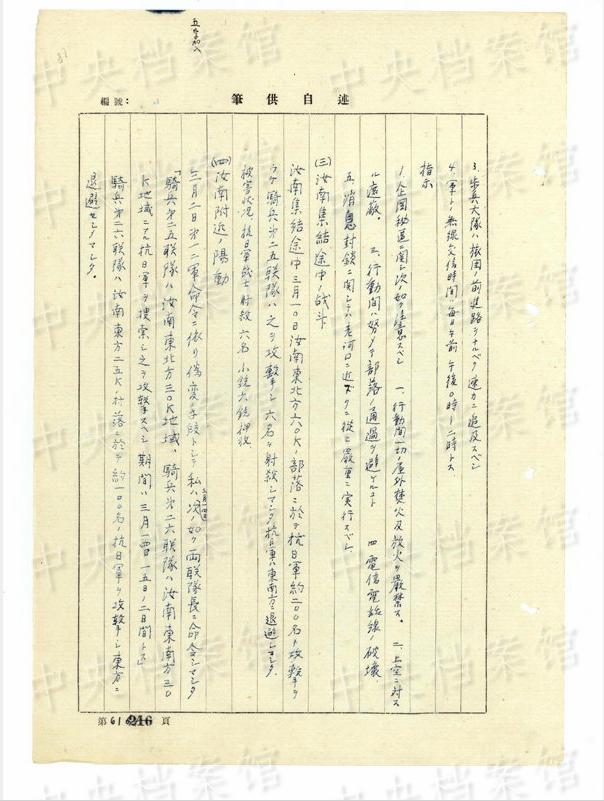 編號：
述自供筆
3. 歩兵大隊ハ依固ノ前進路ヲナルベク速カニ追及スベシ
4. 軍トノ無線交信時間ハ毎日午前午後0時ー二時トス
指示
1. 企図秘匿ニ関シ次ノ如ク注意スベシ 一、行動間一切ノ屋外焚火及放火ヲ厳禁ス。 二、上空ニ対ス
ル遮蔽。 三、行動間ハ努メテ部落ノ通過ヲ避ケルコト 四、電信電話線ノ破壊、
五、消息封鎖ニ関シテハ老河口ニ近ヅクニ従ヒ厳重ニ実行スベシ
(三)汝南集結途中ノ戦斗
汝南集結途中三月一〇日汝南東北方六〇K部落ニ於テ抗日軍約二〇〇名ノ攻撃ヲ
ウケ騎兵第二五联隊ハ之ヲ攻撃シ六名ヲ射殺シマシタ抗日軍ハ東南方ニ退避シマシタ。
被害状況、抗日軍戦士射殺六名 小銃六銃押收
(四)汝南附近ノ陽動
三月二日第一二軍ノ命令ニ依リ私ハ次ノ如ク両联隊長ニ命令シマシタ
「騎兵第二五联隊ハ汝南東北方三〇K地域、騎兵第二六联隊ハ汝南東南方三〇
K地域ニテ抗日軍ヲ捜索シ之ヲ攻撃スベシ 期間ハ三月一四日一五日ノ二日間トス」
騎兵第二六联隊ハ汝南東方二五K村落ニ於テ約一〇〇名ノ抗日軍ヲ攻撃シ東方ニ
退避セシメマシタ。
第61 216頁
中央档案馆